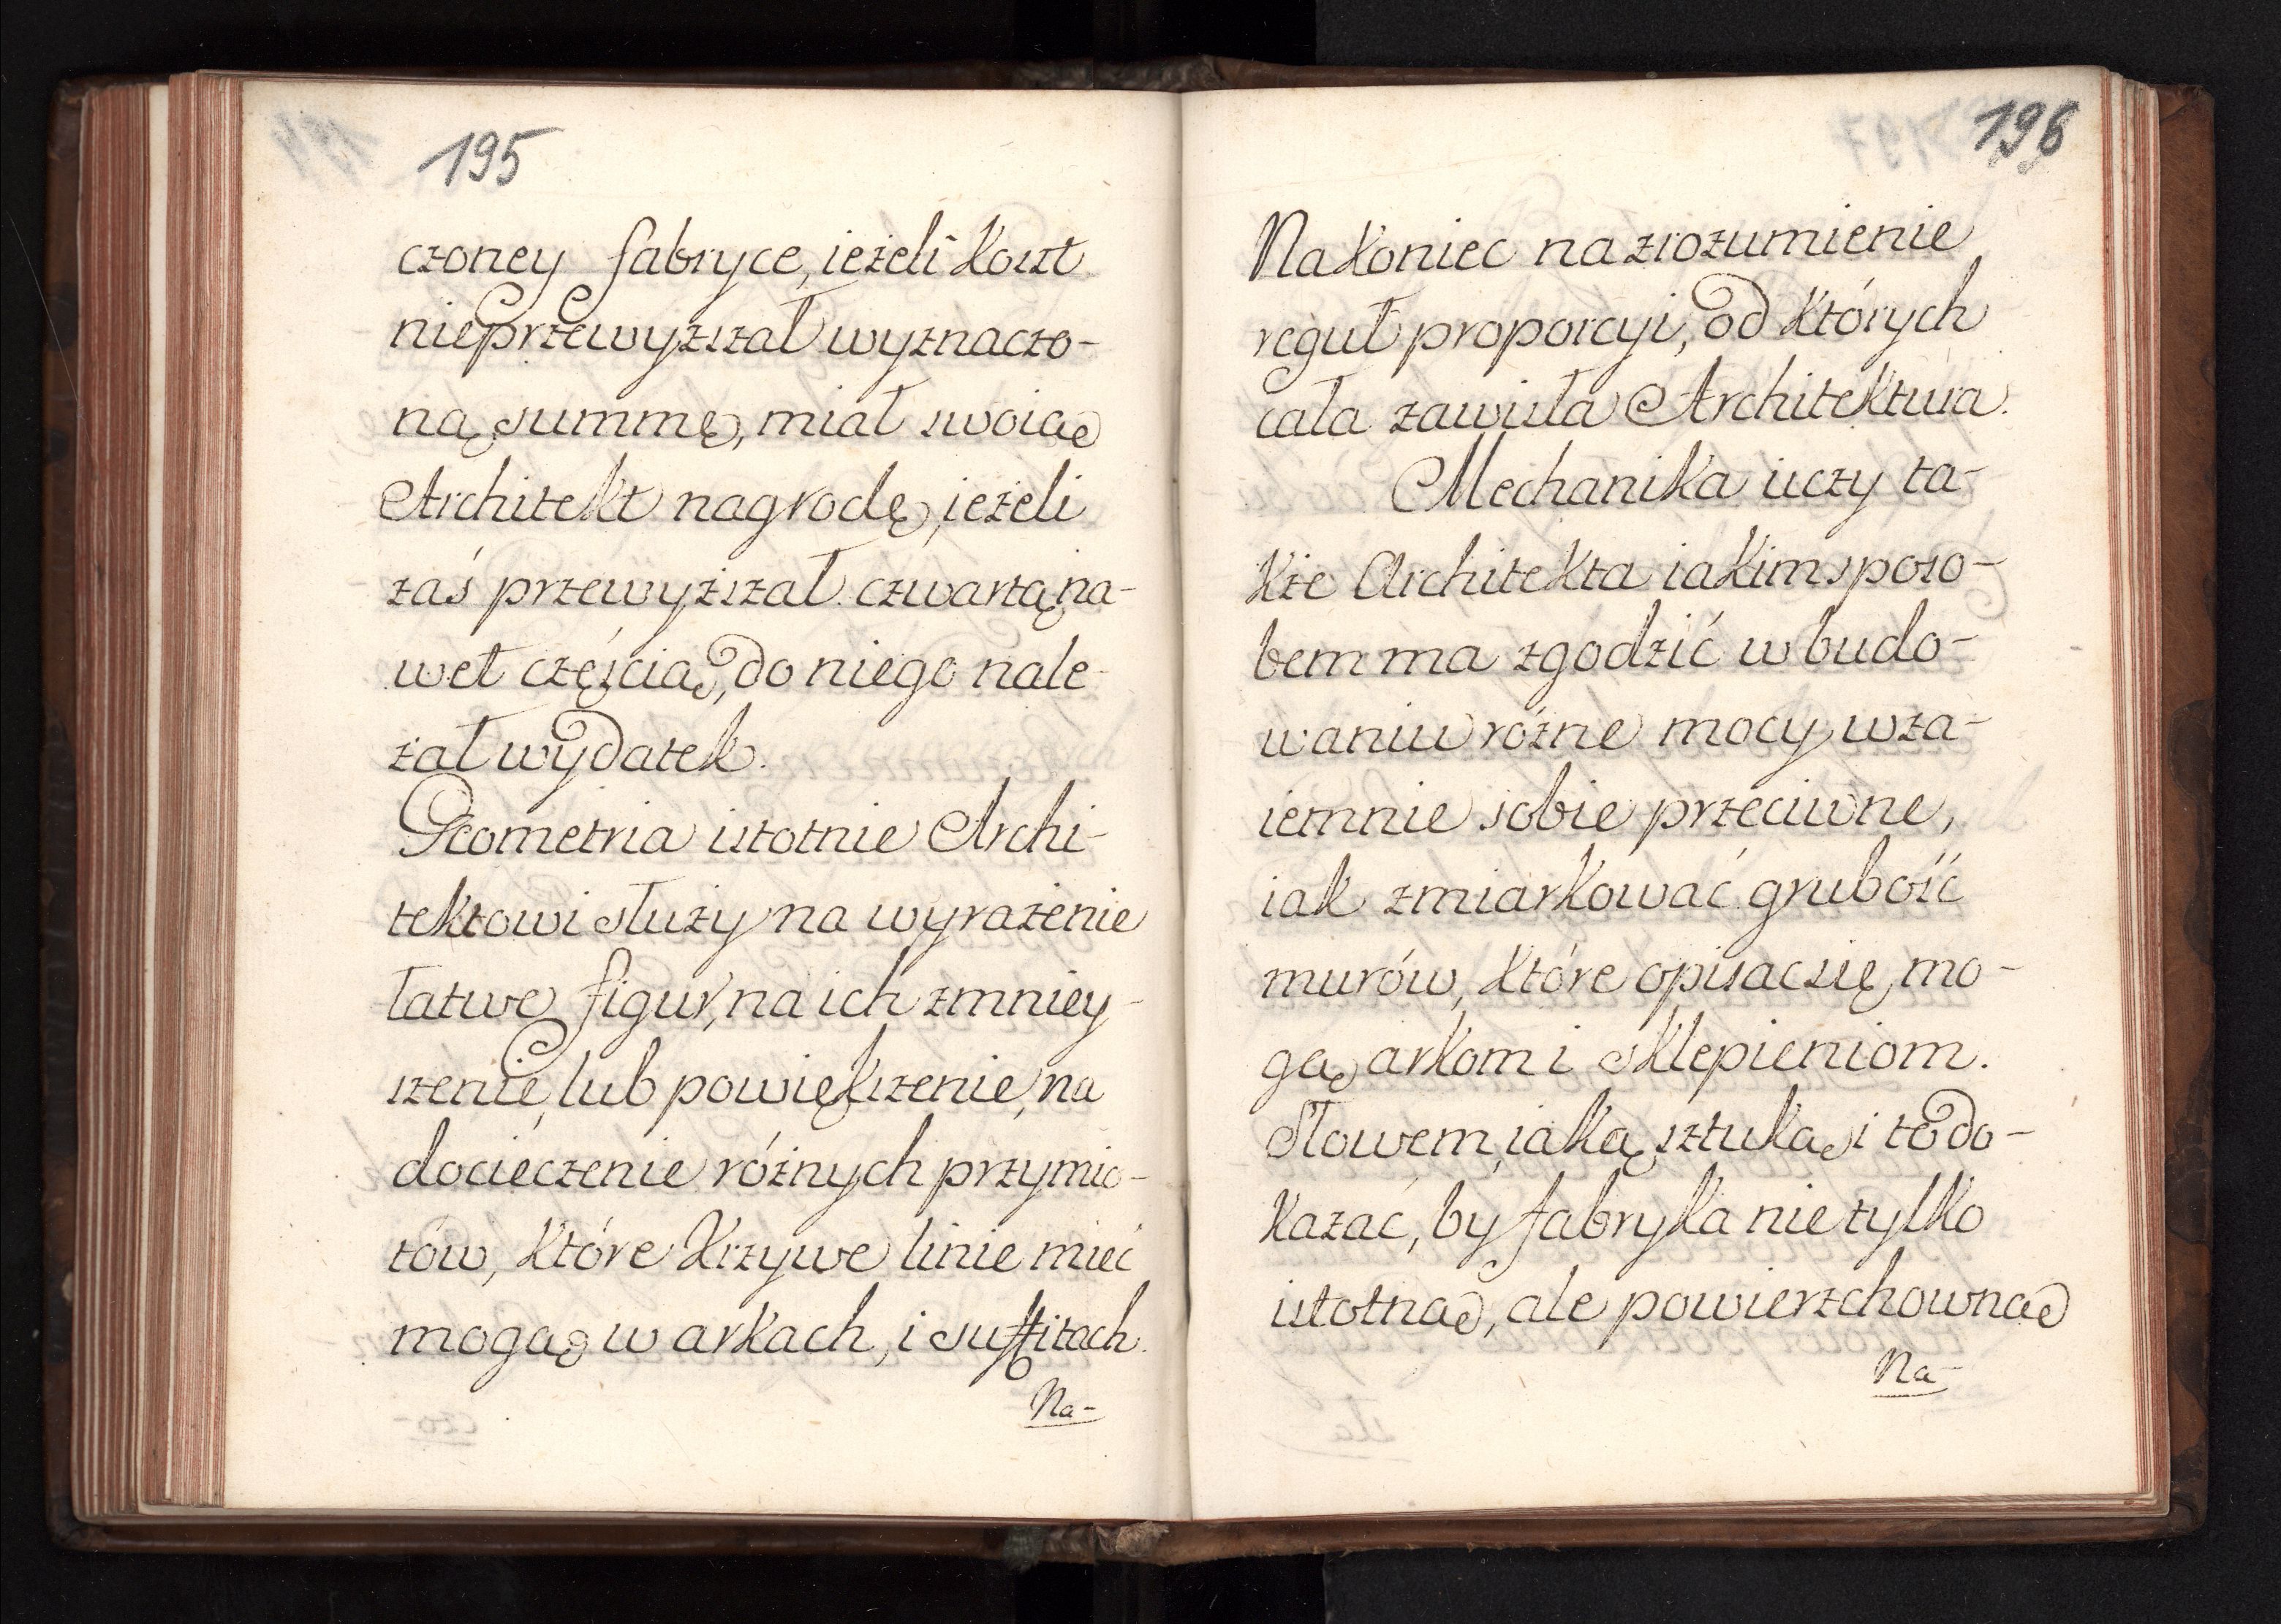 195
czoney fabryce, ieżeli koszt
nieprzewyższał wyznaczo-
ną summę, miał swoią
Architekt nagrodę, ieżeli
zaś przewyższał czwartą na-
wet częścią, do niego nale-
żał wydatek.
Geometria istotnie Archi-
tektowi służy na wyrażenie
łatwe figur, na ich zmniey-
szenie, lub powiększenie, na
docieczenie różnych przymio-
tów, które krzywe linie mieć
mogą w arkach, i suffitach.
Na-
196
Nakoniec na zrozumienie
reguł proporcyi, od których
cała zawisła Architektura.
Mechanika uczy ta-
kże Architekta iakim sposo-
bem ma zgodzić w budo-
waniu różne mocy wza-
iemnie sobie przeciwne,
iak zmiarkować grubość
murów, które opisac się mo-
gą arkom i sklepieniom.
Słowem, iaką sztuką i to do-
kazać, by fabryka nie tylko
istotną, ale powierzchowną
Na-